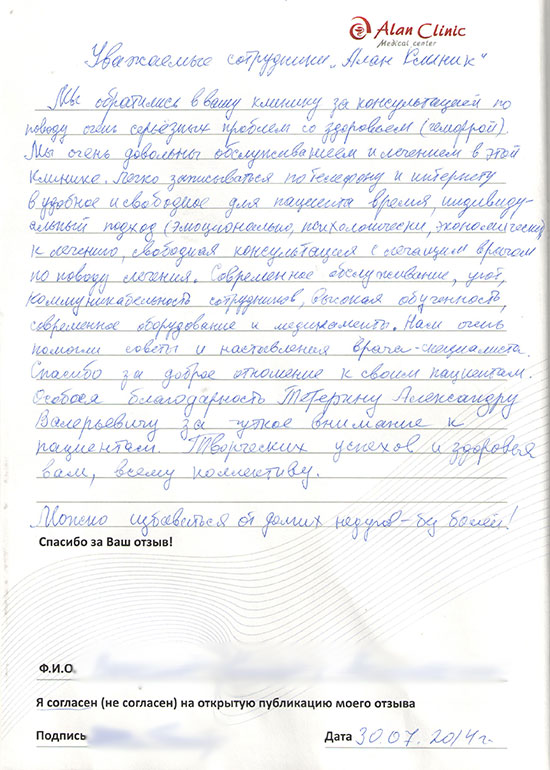 Alan Clinic
Medical center
Уважаемые сотрудники „Алан Клиник"
Мы обратились в вашу клинику за консультацией по
поводу очень серьёзных проблем со здоровьем (геморрой).
Мы очень довольны обслуживанием и лечением в этой
клинике. Легко записываться по телефону и интернету
в удобное и свободное для пациента время, индивиду-
альный подход (эмоционально, психологически, экономически)
к лечению, свободная консультация с лечащим врачом
по поводу лечения. Современное обслуживание, уют,
коммуникабельность сотрудников, высокая обученность,
современное оборудование и медикаменты. Нам очень
помогли советы и наставления врача-специалиста.
Спасибо за доброе отношение к своим пациентам.
Особая благодарность Тетерину Александру
Валерьевичу за чуткое внимание к
пациентам. Творческих успехов и здоровья
вам, всему коллективу.
Можно избавиться от долгих недугов – без болей!
Спасибо за Ваш отзыв!
Ф.И.О.
Я согласен (не согласен) на открытую публикацию моего отзыва
Подпись
Дата 30.07.2014г.